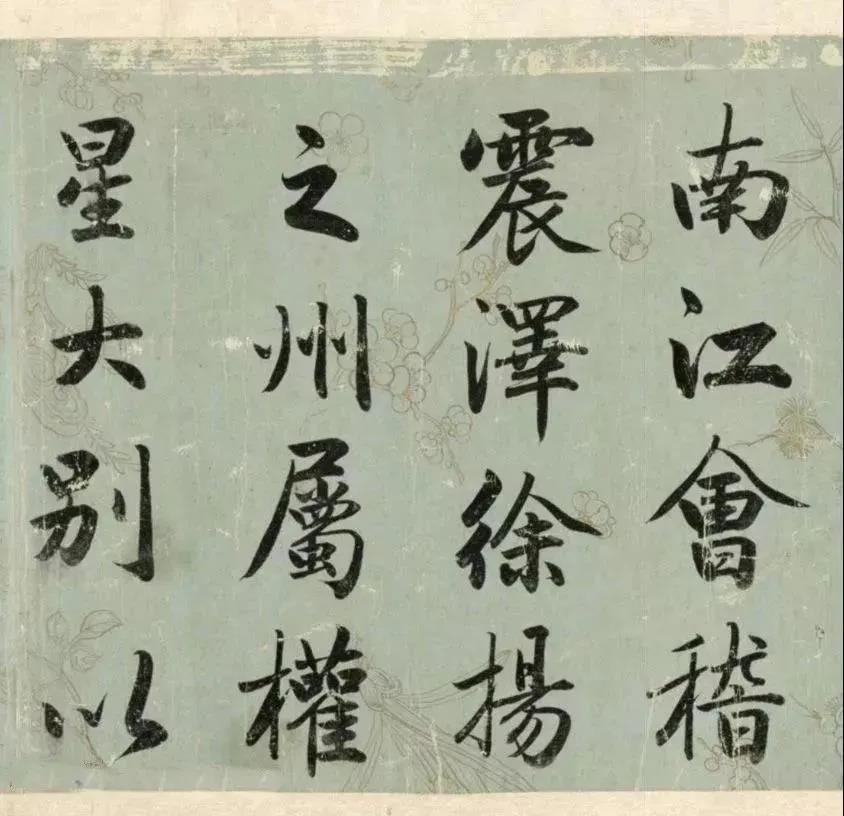 南江會稽
震澤徐揚
之州屬權
星大別以